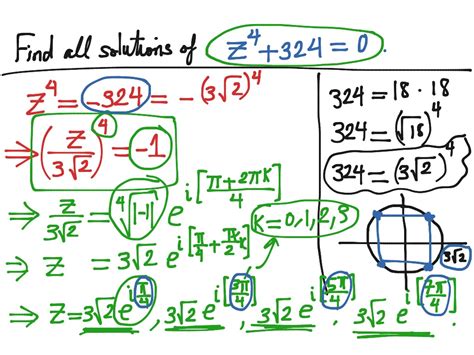 Find all solutions of z⁴+324=0.
z⁴ = -324 = -(3√2)⁴
⇒ (z/3√2)⁴ = -1
⇒ z/3√2 = ⁴√|-1| e^{i[(π+2πk)/4]} k=0,1,2,3
⇒ z = 3√2 e^{i[π/4+π/2 k]}
⇒ z=3√2 e^{i[π/4]}, 3√2 e^{i[3π/4]}, 3√2 e^{i[5π/4]}, 3√2 e^{i[7π/4]}
324 = 18 · 18
324 = (√18)⁴
324 = (3√2)⁴
3√2